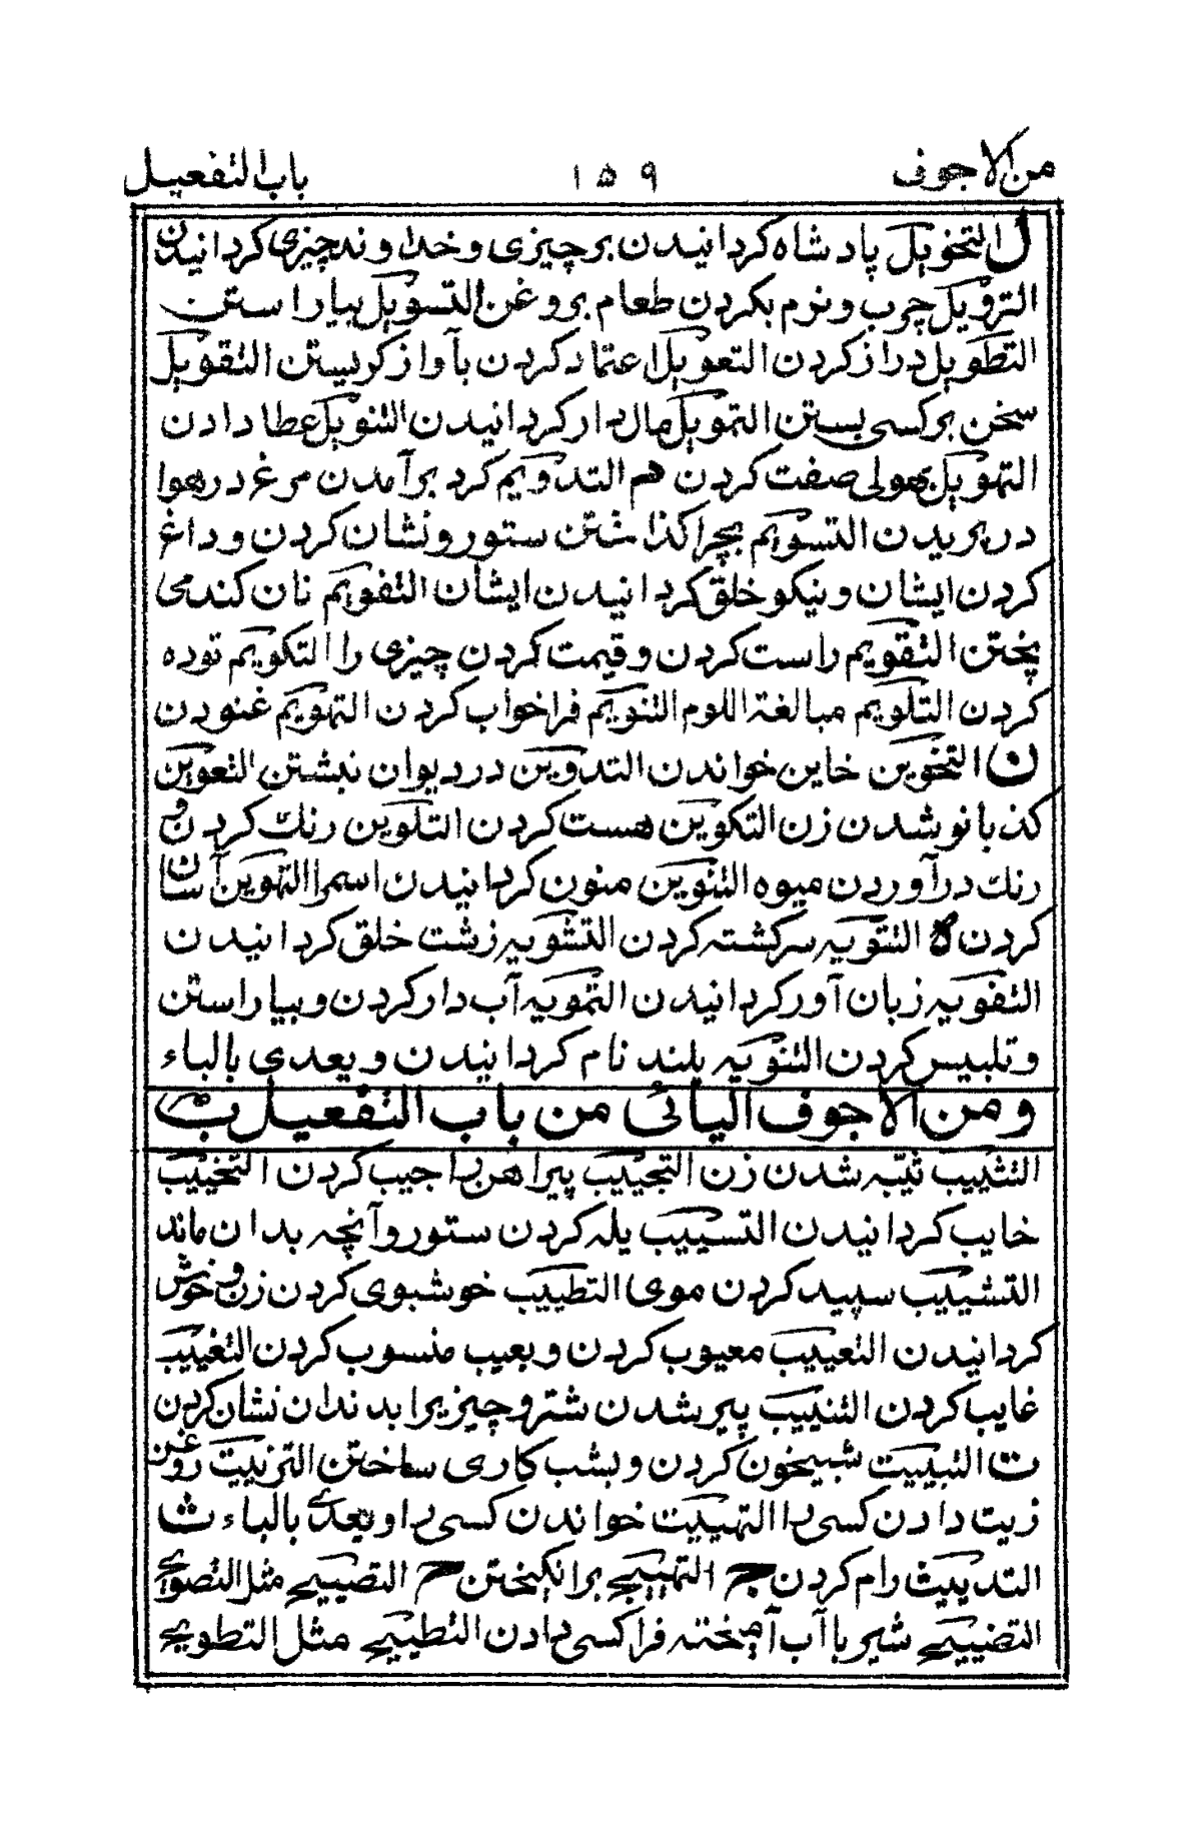 من الاجوف ١٥٩ باب التفعیل
ل التخویل پادشاه کردانیدن بر چیزی و خداوند چیزی کردانیدن
الترویل چرب و نرم بکردن طعام بروغن التسویل بیاراستن
التطویل دراز کردن التعویل اعتماد کردن بآواز کریستن التقویل
سخن بر کسی بستن التمویل مال دار کردانیدن التنویل عطا دادن
التهویل بهولی صفت کردن م التدویم کرد برآمدن مرغ در هوا
در پریدن التسویم بچرا کذاشتن ستور و نشان کردن و داغ
کردن ایشان و نیکو خلق کردانیدن ایشان التفویم نان کندمی
پختن التقویم راست کردن و قیمت کردن چیزی را التکویم توده
کردن التلویم مبالغة اللوم التنویم فراخواب کردن التهویم غنودن
ن التخوین خاین خواندن التدوین در دیوان نبشتن التعوین
کذبانو شدن زن التکوین هست کردن التلوین رنك کردن و
رنك درآوردن میوه التنوین منون کردانیدن اسم را التهوین آسان
کردن ه التتویه سرکشته کردن التشویه زشت خلق کردانیدن
التفویه زبان آور کردانیدن التمویه آب دار کردن و بیاراستن
و تلبیس کردن التنویه بلند نام کردانیدن و یعدی بالباء
و من الاجوف الیائی من باب التفعیل ب
التثییب ثیّبه شدن زن التجییب پیراهن را جیب کردن التخییب
خایب کردانیدن التسییب یله کردن ستور و آنچه بدان ماند
التشییب سپید کردن موی التطییب خوشبوی کردن زن و خوش
کردانیدن التعییب معیوب کردن و بعیب منسوب کردن التغییب
غایب کردن التنییب پیر شدن شتر و چیزیرا بدندان نشان کردن
ت التبییت شبیخون کردن و بشب کاری ساختن التزییت روغن
زیت دادن کسی را التهییت خواندن کسی را و یعدی بالباء ث
التدییث رام کردن ج التهییج برانکیختن ح التصییح مثل التصویح
التضییح شیر با آب آمیخته فرا کسی دادن التطییح مثل التطویح